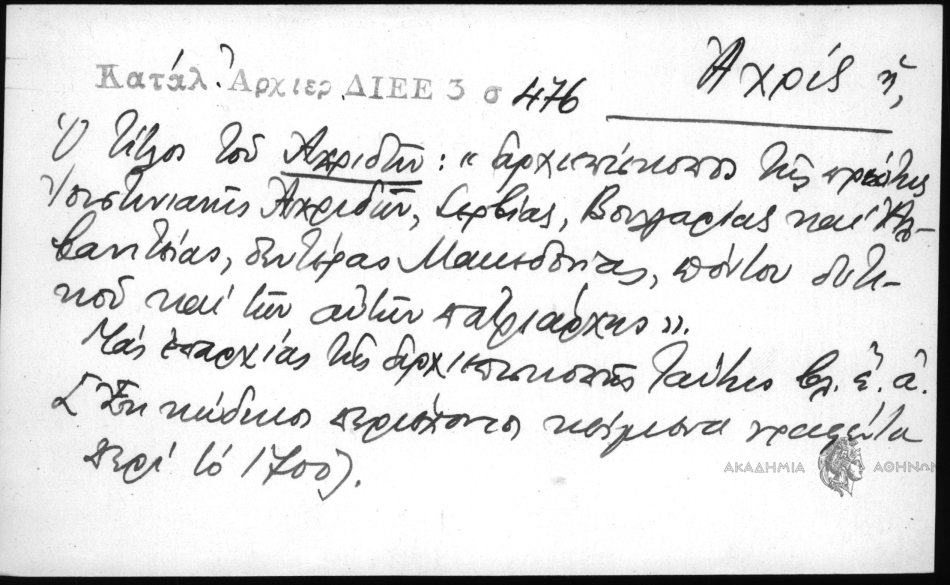 Ἀχρίς ἡ,
Κατάλ. Ἀρχιερ. ΔΙΕΕ 3 σ 476
Ὁ τίτλος τοῦ Ἀχριδῶν: «ἀρχιεπίσκοπος τῆς πρώτης
Ἰουστινιανῆς Ἀχριδῶν, Σερβίας, Βουλγαρίας καὶ Ἀλ-
βανιτείας, δευτέρας Μακεδονίας, πόντου δυτι-
κοῦ καὶ τῶν αὐτῶν πατριάρχης».
Τὰς ἐπαρχίας τῆς ἀρχιεπισκοπῆς ταύτης βλ. ἐ. ἀ.
[Ἐκ κώδικος περιέχοντος κείμενα γραφέντα
περὶ τὸ 1700].
ΑΚΑΔΗΜΙΑ ΑΘΗΝΩΝ